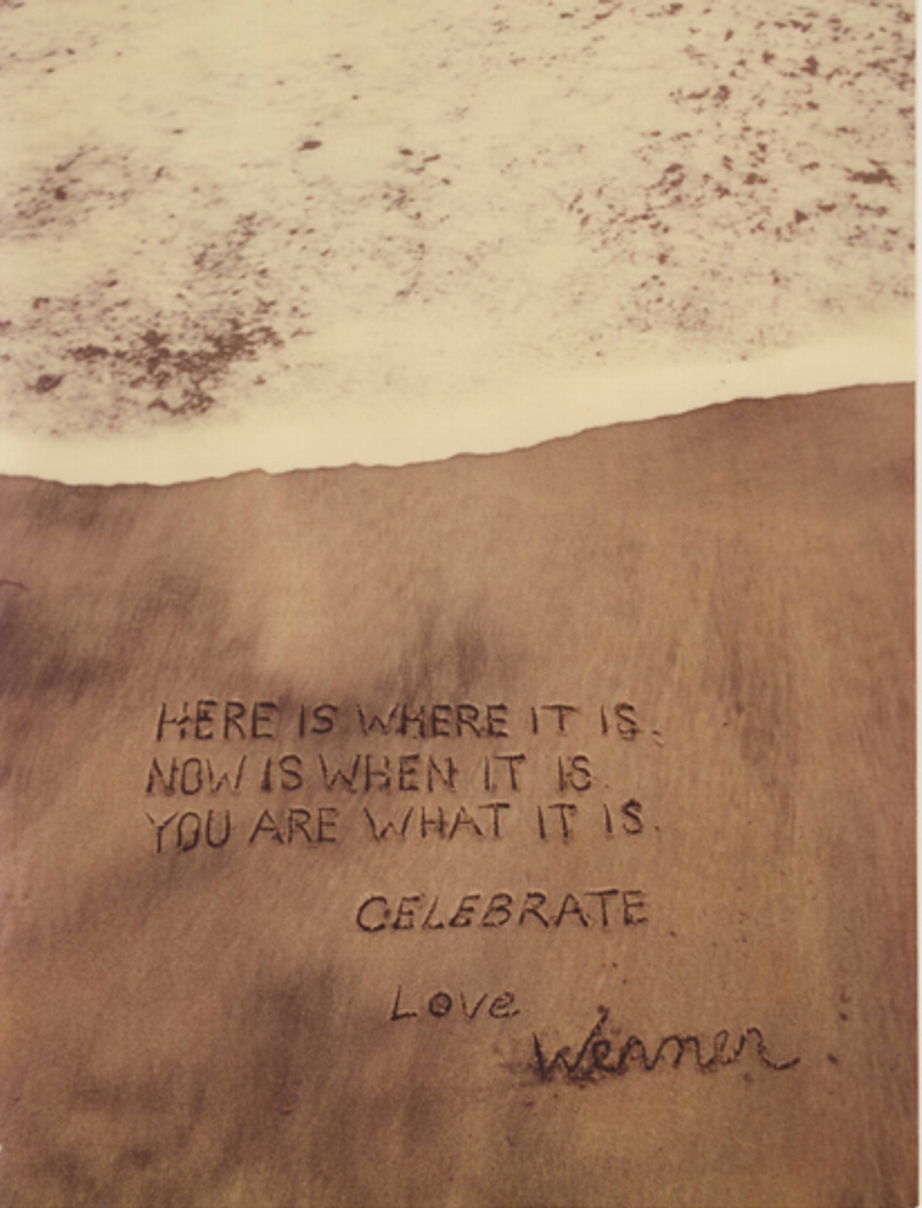 HERE IS WHERE IT IS.
NOW IS WHEN IT IS.
YOU ARE WHAT IT IS.
CELEBRATE
Love
Werner